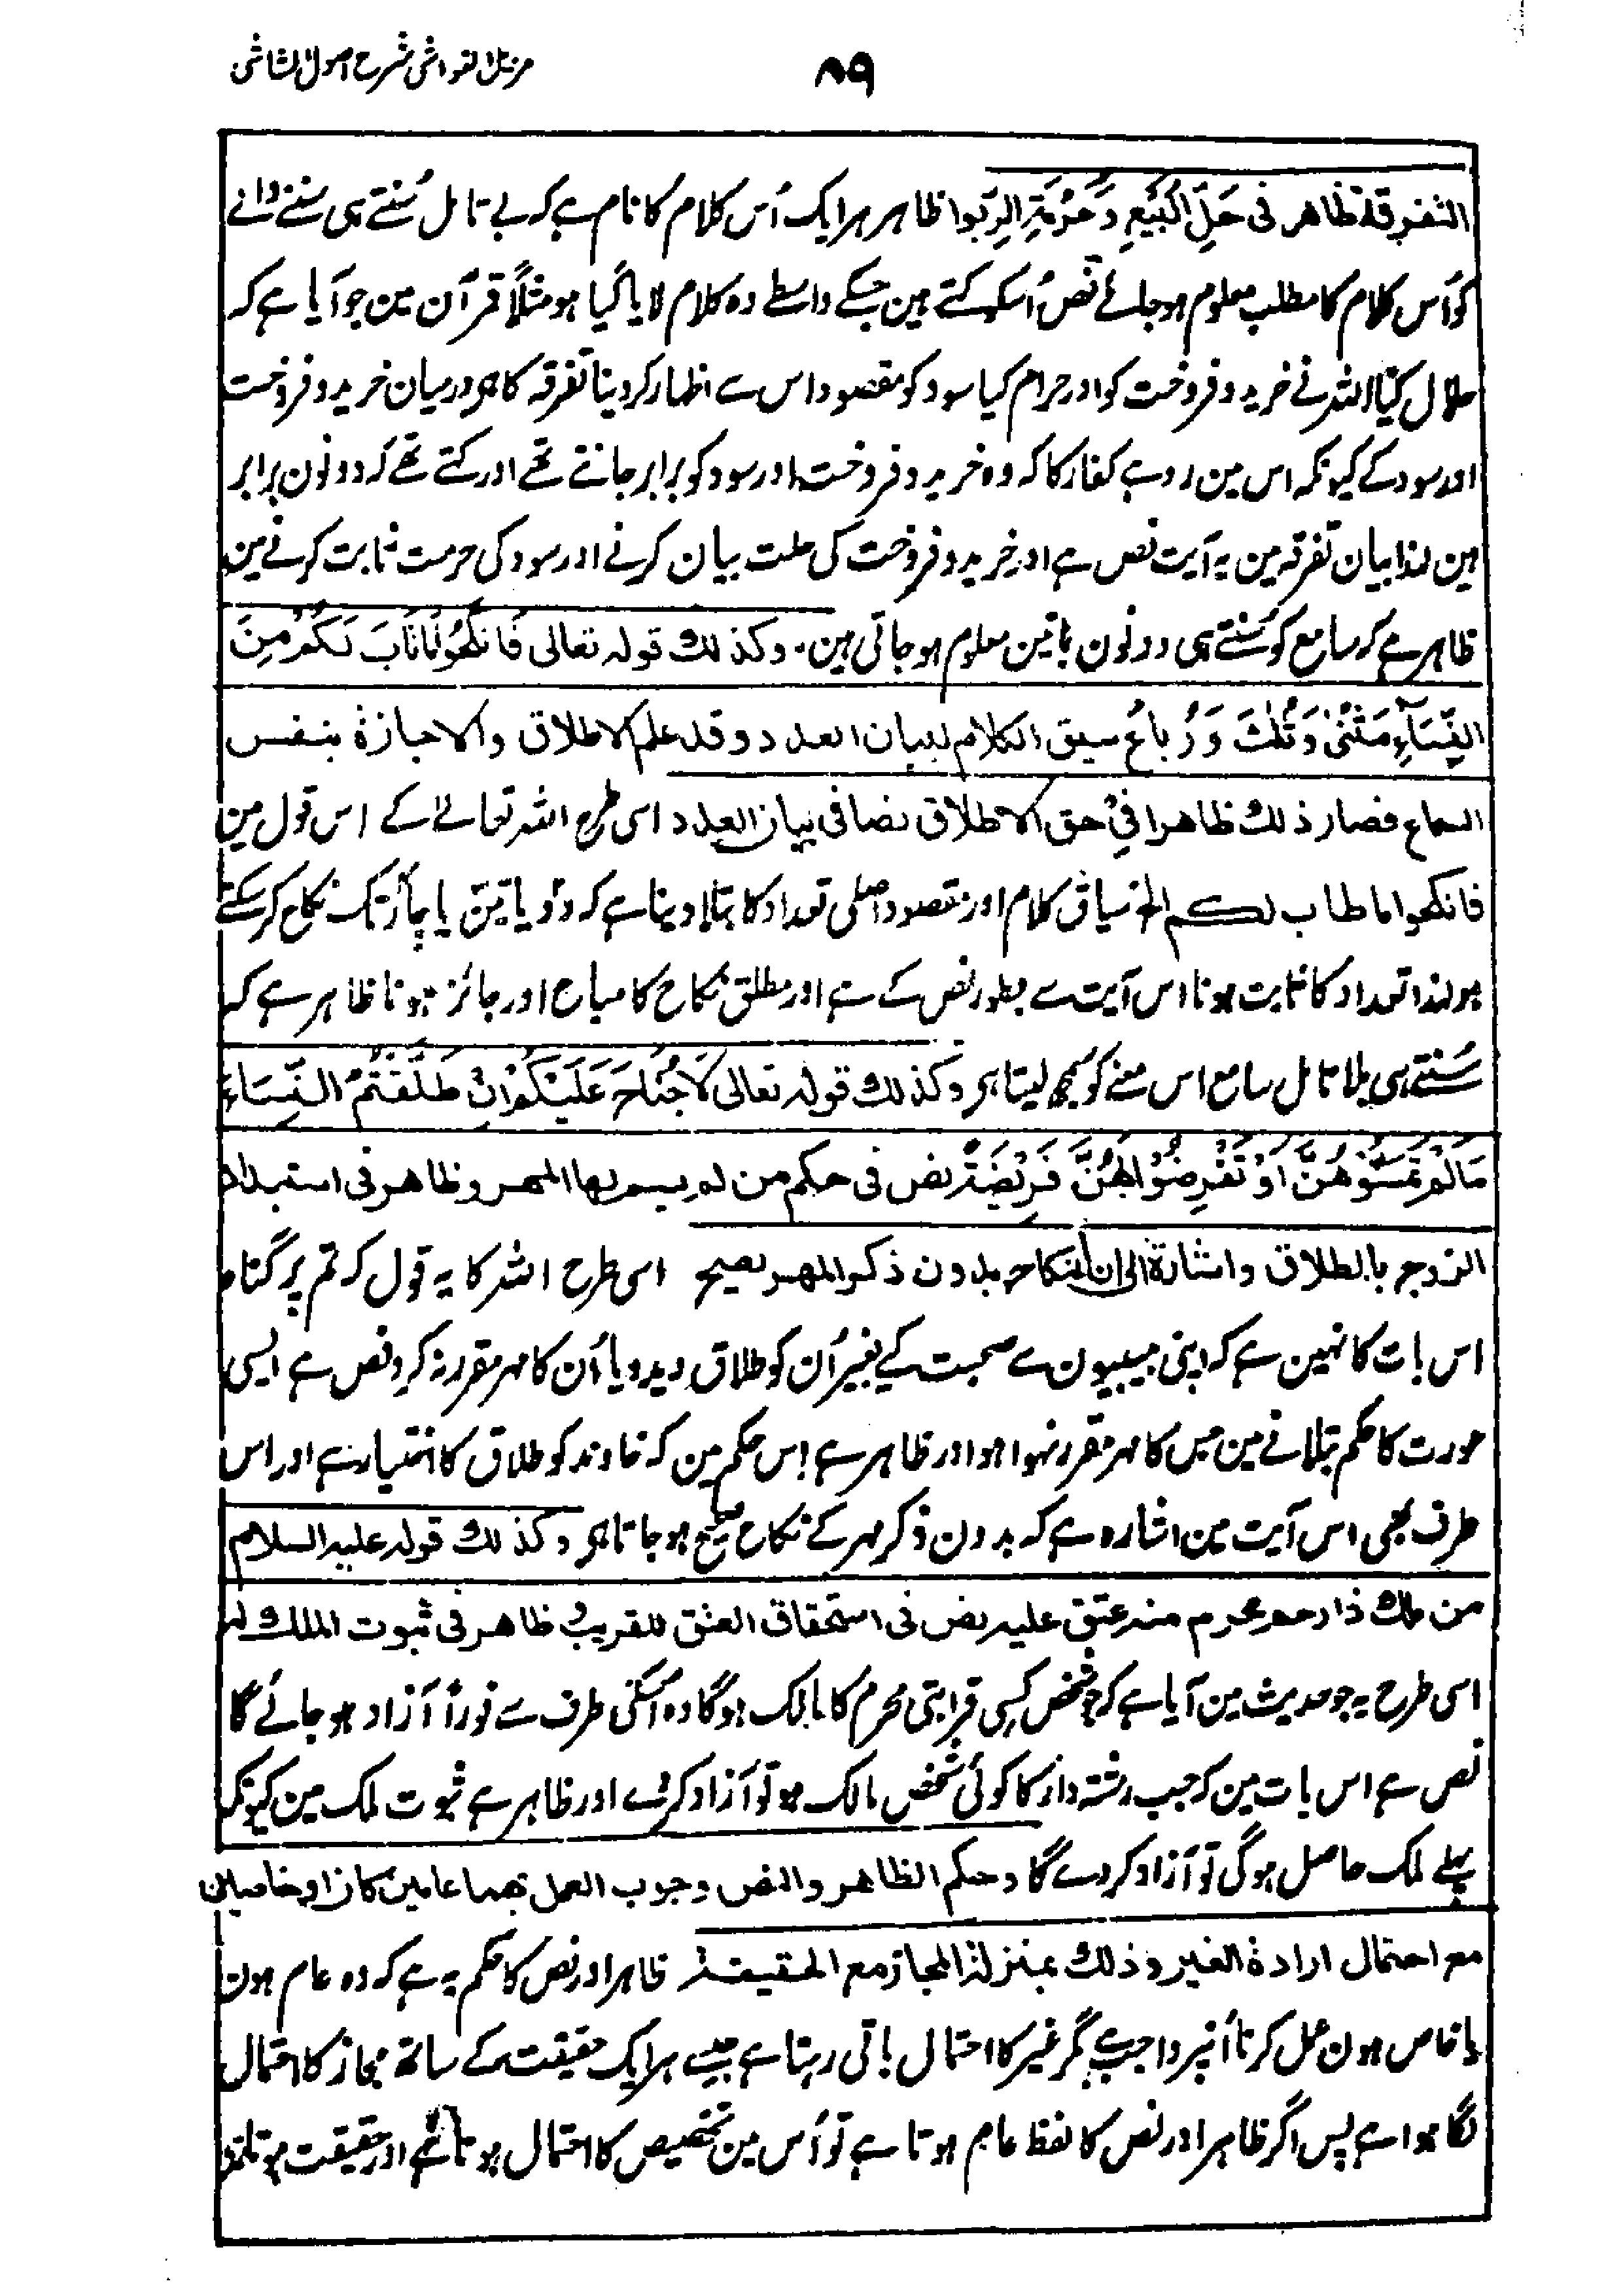 مزیل الغواشی شرح اصول الشاشی
۸۹
التفرقة ظاهر فی حَلِّ الْبَیْعِ وَحُرْمَةِ الرِّبوا ظاہر ہر ایک اُس کلام کا نام ہے کہ بے تامل سُنتے ہی سننے والے
کو اُس کلام کا مطلب معلوم ہو جائے نص اُسکو کہتے ہین جسکے واسطے وہ کلام لایا گیا ہو مثلًا قرآن مین جو آیا ہے کہ
حلال کیا اللہ نے خرید و فروخت کو اور حرام کیا سود کو مقصود اس سے اظہار کر دینا تفرقہ کا ہو درمیان خرید و فروخت
اور سود کے کیونکہ اس مین رد ہے کفار کا کہ وہ خرید و فروخت اور سود کو برابر جانتے تھے اور کہتے تھے کہ دونون برابر
ہین لہذا بیان تفرقہ مین یہ آیت نص ہے اور خرید و فروخت کی حلت بیان کرنے اور سود کی حرمت ثابت کرنے مین
ظاہر ہے کہ سامع کو سُنتے ہی دونون باتین معلوم ہو جاتی ہین۔ وکذلك قوله تعالی فَانْكِحُوْا مَا طَابَ لَكُمْ مِنَ
النِّسَآءِ مَثْنٰی وَثُلٰثَ وَرُبَاعَ سیق الکلام لبیان العدد وقد علم الاطلاق والاجازة بنفس
السماع فصار ذلك ظاهرا فی حق الاطلاق نصا فی بیان العدد اسی طرح اللہ تعالےٰ کے اس قول مین
فانکحوا ما طاب لکم الخ سیاق کلام اور مقصود اصلی تعداد کا بتلا دینا ہے کہ دو یا تین یا چار تک نکاح کر سکتے
ہو لہذا تعداد کا ثابت ہونا اس آیت سے بطور نص کے ہے اور مطلق نکاح کا مباح اور جائز ہونا ظاہر ہے کہ
سُنتے ہی بلا تامل سامع اس معنے کو سمجھ لیتا ہو وکذلك قوله تعالی لَاجُنَاحَ عَلَيْكُمْ اِنْ طَلَّقْتُمُ النِّسَاءَ
مَالَمْ تَمَسُّوْهُنَّ اَوْ تَفْرِضُوْا لَهُنَّ فَرِيْضَةً نص فی حکم من لم یسم لها المهر وظاهر فی استبداد
الزوج بالطلاق واشارة الی ان النکاح بدون ذکر المهر یصح اسی طرح اللہ کا یہ قول کہ تم پر گناہ
اس بات کا نہین ہے کہ اپنی بیبیون سے صحبت کیے بغیر اُن کو طلاق دیدو یا اُن کا مہر مقرر نہ کرو نص ہے ایسی
عورت کا حکم بتلانے مین جس کا مہر مقرر نہوا ہو اور ظاہر ہے اِس حکم مین کہ خاوند کو طلاق کا اختیار ہے اور اس
طرف بھی اس آیت مین اشارہ ہے کہ بدون ذکر مہر کے نکاح صحیح ہو جاتا ہو وکذلك قوله علیه السلام
من ملك ذا رحم محرم منه عتق علیه نص فی استحقاق العتق للقریب وظاهر فی ثبوت الملك له
اسی طرح یہ جو حدیث مین آیا ہے کہ جو شخص کسی قرابتی محرم کا مالک ہوگا وہ اُسکی طرف سے فوراً آزاد ہو جائے گا
نص ہے اس بات مین کہ جب رشتہ دار کا کوئی شخص مالک ہو تو آزاد کردے اور ظاہر ہے ثبوت ملک مین کیونکہ
پہلے ملک حاصل ہوگی تو آزاد کردے گا وحکم الظاهر والنص وجوب العمل بهما عامین کانا او خاصین
مع احتمال ارادة الغیر وذلك بمنزلة المجاز مع الحقیقة ظاہر اور نص کا حکم یہ ہے کہ وہ عام ہون
یا خاص ہون عمل کرنا اُنپر واجب ہے مگر غیر کا احتمال باقی رہتا ہے جیسے ہر ایک حقیقت کے ساتھ مجاز کا احتمال
لگا ہوا ہے پس اگر ظاہر اور نص کا لفظ عام ہوتا ہے تو اُس مین تخصیص کا احتمال ہوتا ہے اور حقیقت ہو